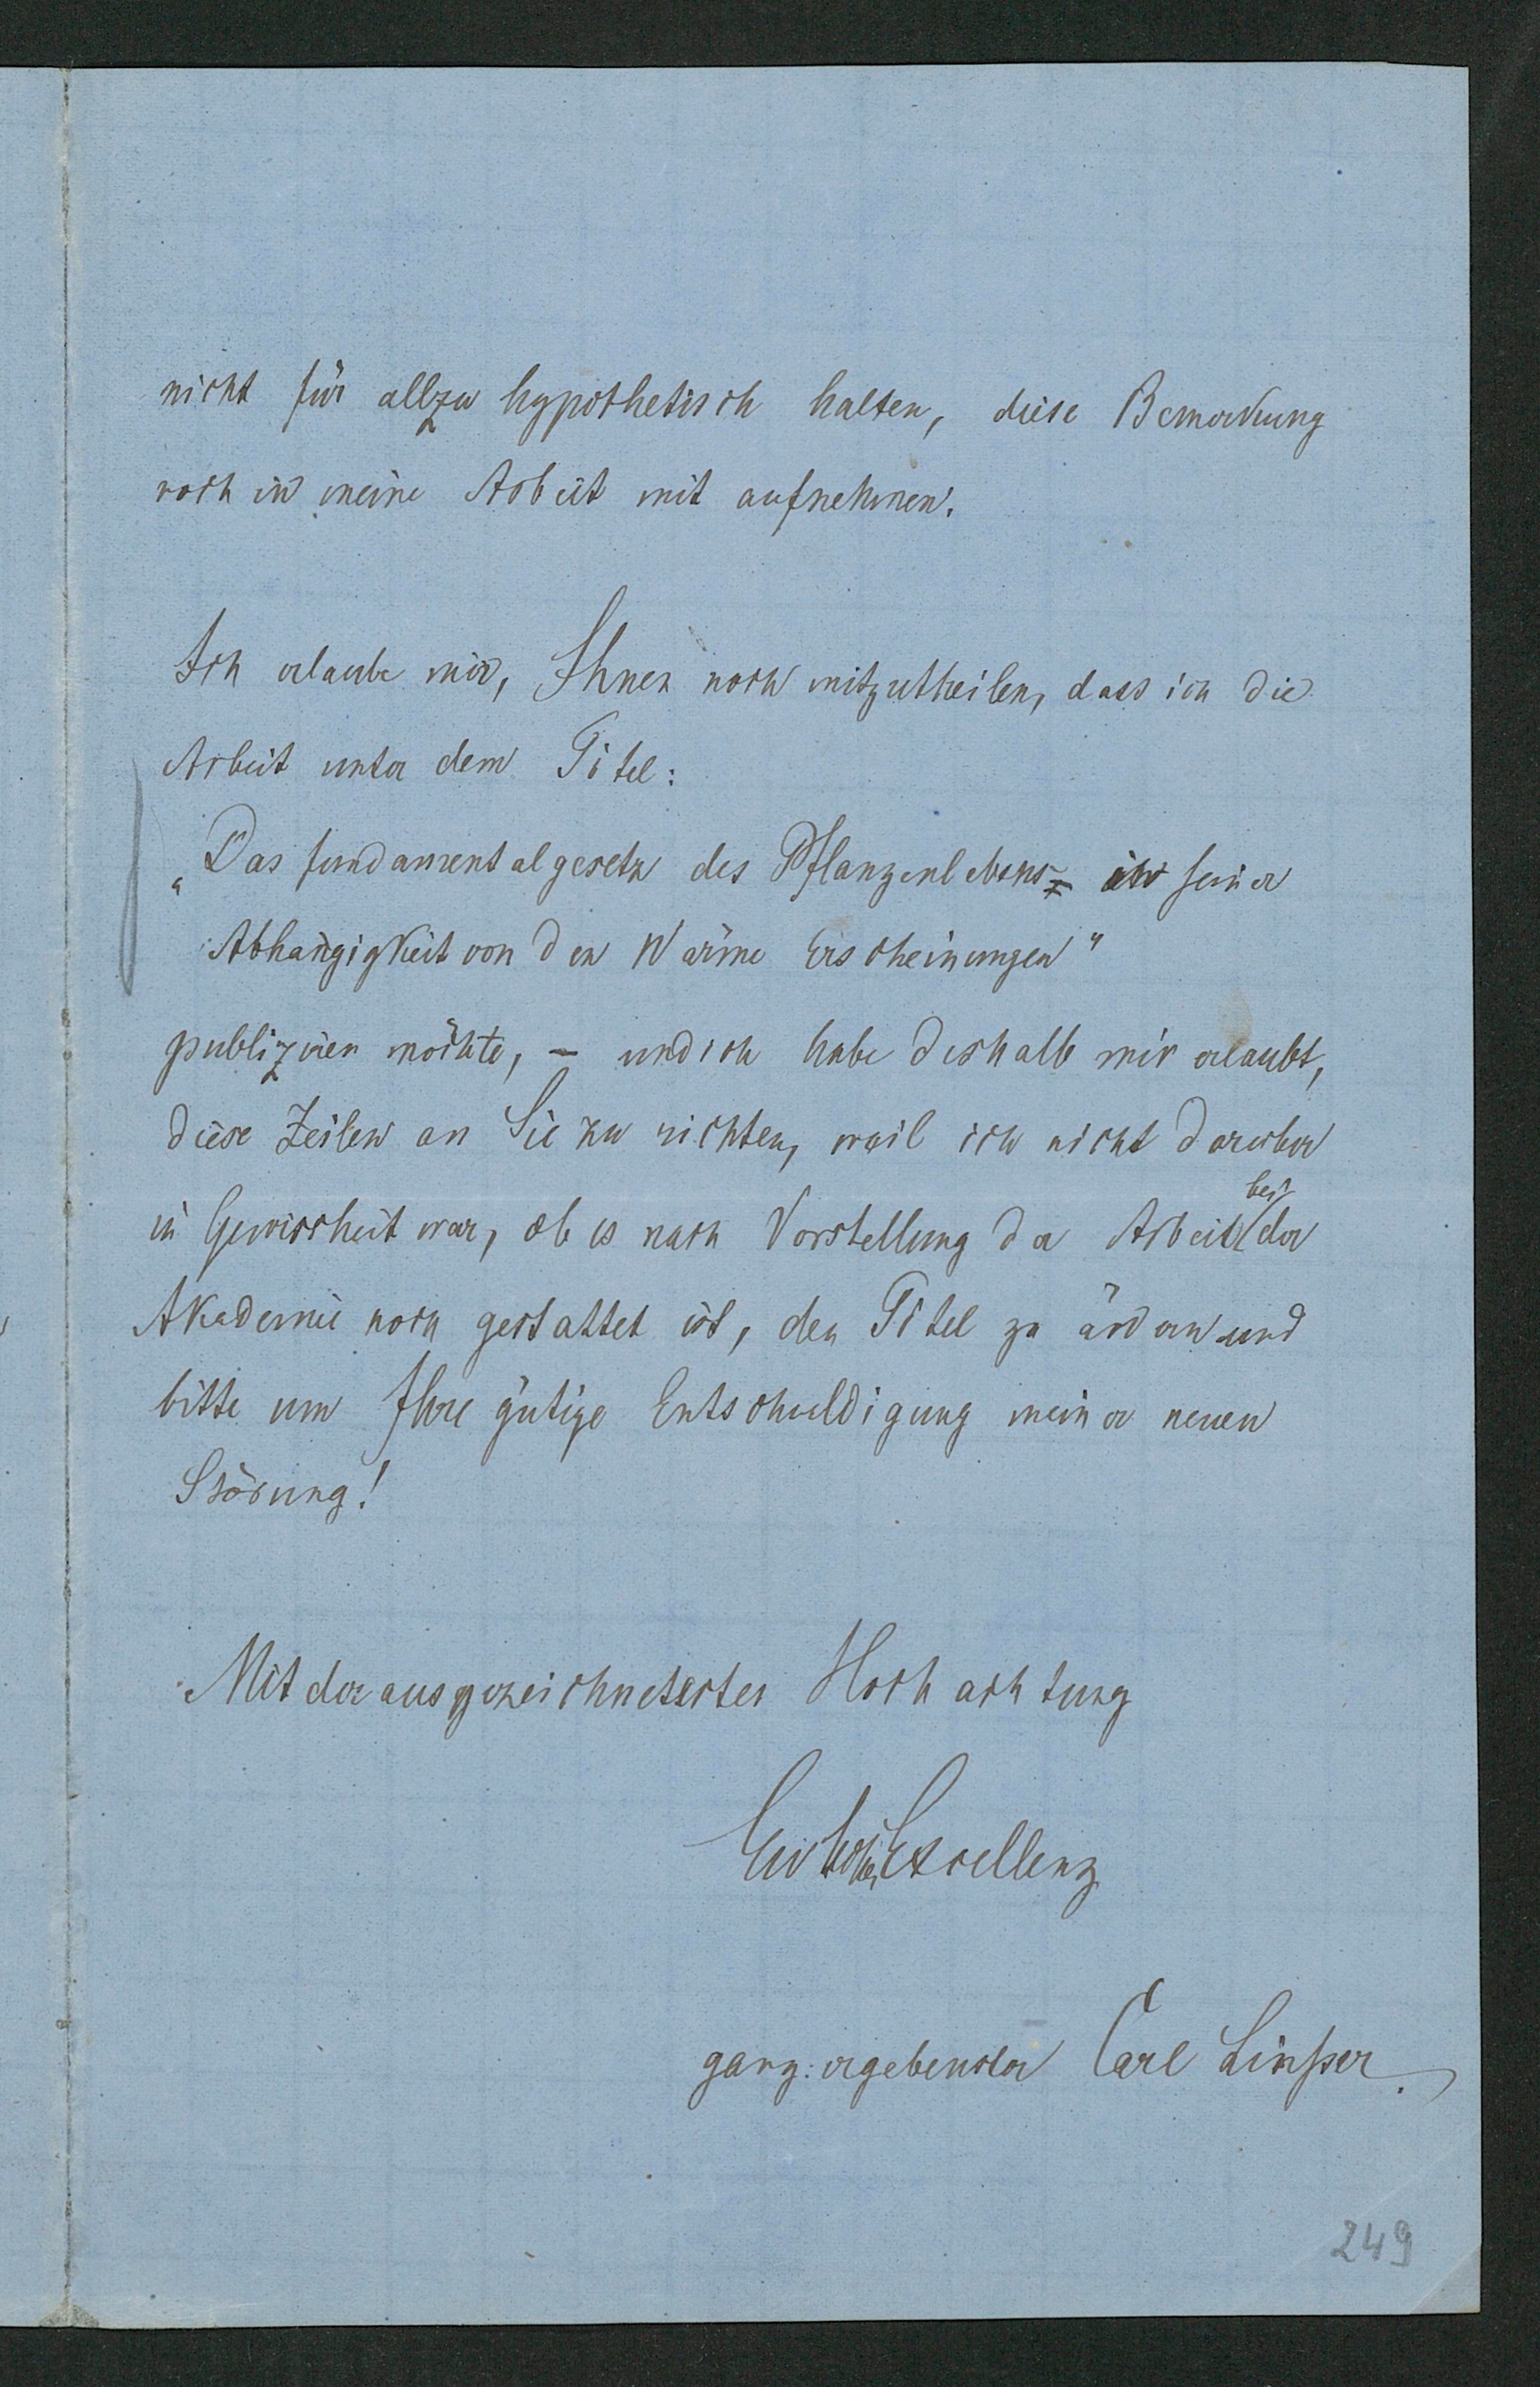 nicht für allzu hypothetisch halten, diese Bemerkung
noch in meine Arbeit mit aufnehmen.
Ich erlaube mir, Ihnen noch mitzutheilen, dass ich die
Arbeit unter dem Titel:
„Das Fundamentalgesetz des Pflanzenlebens in seiner
Abhängigkeit von den Wärme Erscheinungen"
publiziren möchte, – und ich habe deshalb mir erlaubt,
diese Zeilen an Sie zu richten, weil ich nicht darüber
in Gewissheit war, ob es nach Vorstellung der Arbeit bei der
Akademie noch gestattet ist, den Titel zu ändern und
bitte um Ihre gütige Entschuldigung meiner neuen
Störung!
Mit der ausgezeichnetesten Hochachtung
Ew Excellenz
ganz ergebenster Carl Linsser.
249